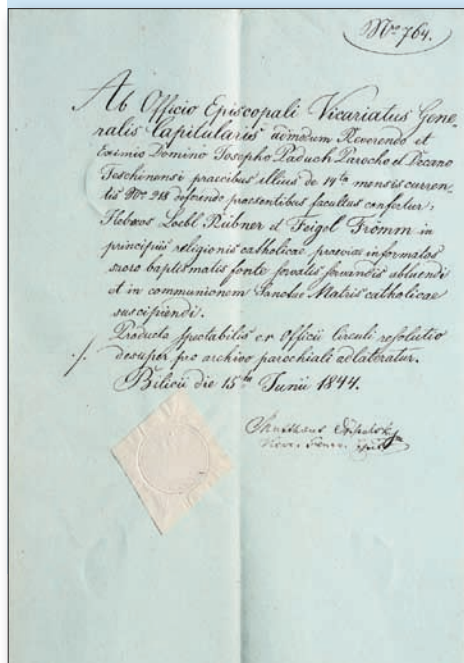 Nro 764.
Ab Officio Episcopali Vicariatus Gene-
ralis Capitularis admodum Reverendo et
Eximio Domino Josepho Paduch Parocho et Decano
Teschinensi praecibus illius de 14ta mensis curren-
tis Nro 218 deferendo praesentibus facultas confertur,
Hebraeos Loebl Rübner et Feigel Fromm in
principiis religionis catholicae praevie informatos
sacro baptismatis fonte servatis servandis abluendi
et in communionem Sanctae Matris catholicae
suscipiendi.
Producta spectabilis cr Officii Circuli resolutio
./. desuper pro archivo parochiali adlateratur.
Bilicii die 15ta Junii 1844.